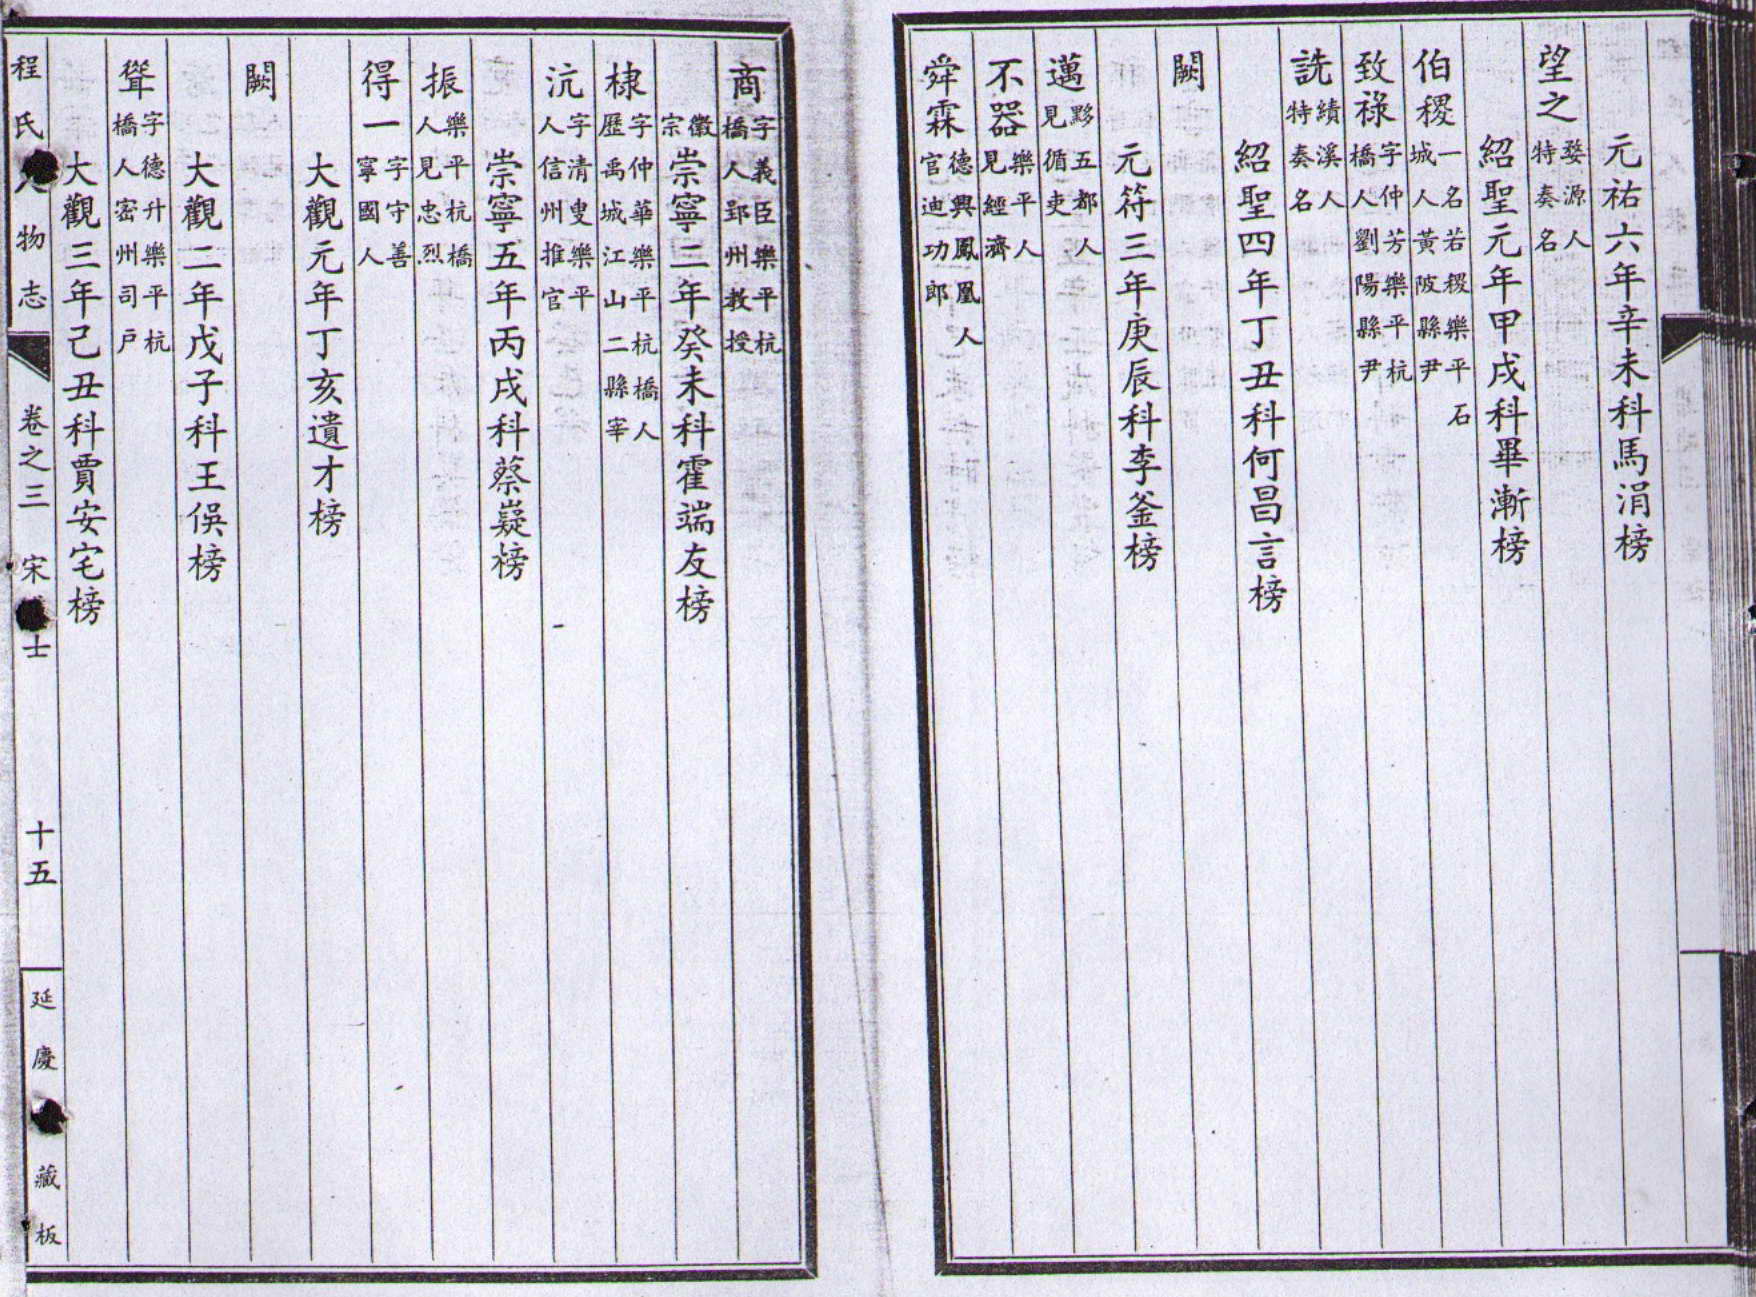 元祐六年辛未科馬涓榜
望之 婺源人特奏名
紹聖元年甲戌科畢漸榜
伯稷 一名若稷樂平石城人黃陂縣尹
致祿 字仲芳樂平杭橋人劉陽縣尹
詵 績溪人特奏名
紹聖四年丁丑科何昌言榜
闕
元符三年庚辰科李釜榜
邁 黟五都人見循吏
不器 樂平人見經濟
舜霖 德興鳳凰人官迪功郎
商 字義臣樂平杭橋人郢州教授
徽宗 崇寧二年癸未科霍端友榜
棣 字仲華樂平杭橋人歷禹城江山二縣宰
沆 字清叟樂平人信州推官
崇寧五年丙戌科蔡嶷榜
振 樂平杭橋人見忠烈
得一 字守善寧國人
大觀元年丁亥遺才榜
闕
大觀二年戊子科王俁榜
聳 字德升樂平杭橋人密州司戶
大觀三年己丑科賈安宅榜
程氏人物志 卷之三 宋 士 十五 延慶 藏板